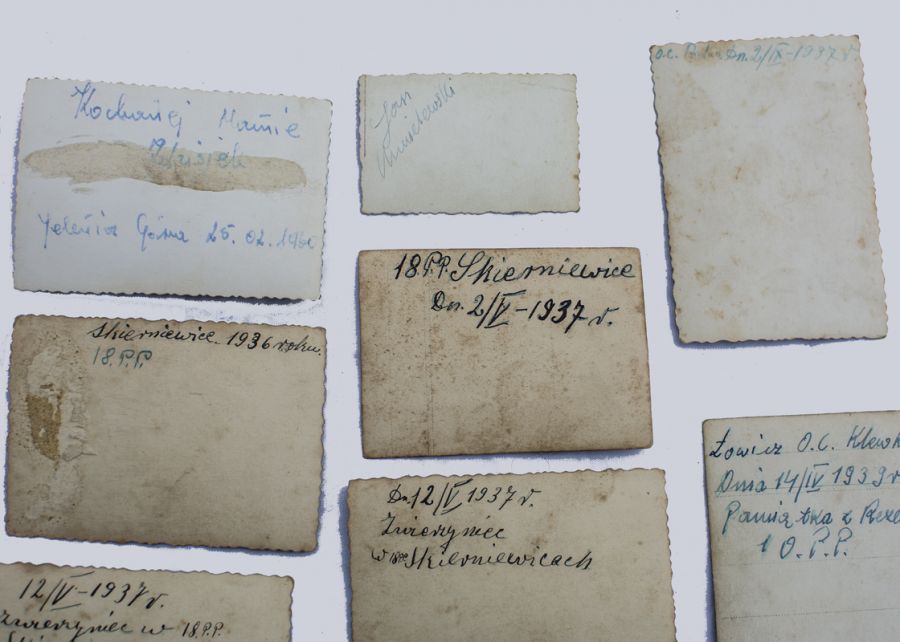 Kochanej Mamie
Zdzisiek
Jelenia Góra 25. 02. 1960
Jan
o.c. Dn. 2/IX-1937 r.
18.P.P. Skierniewice
Dn. 2/V-1937 r.
Skierniewice 1936 roku.
18.P.P.
Dn. 12/V 1937 r.
Zwierzyniec
w Skierniewicach
Łowicz O.C. Klewk
Dnia 14/IV 1939 r
Pamiątka z Reze
1 O.P.P.
12/V-1937 r.
Zwierzyniec w 18.P.P.